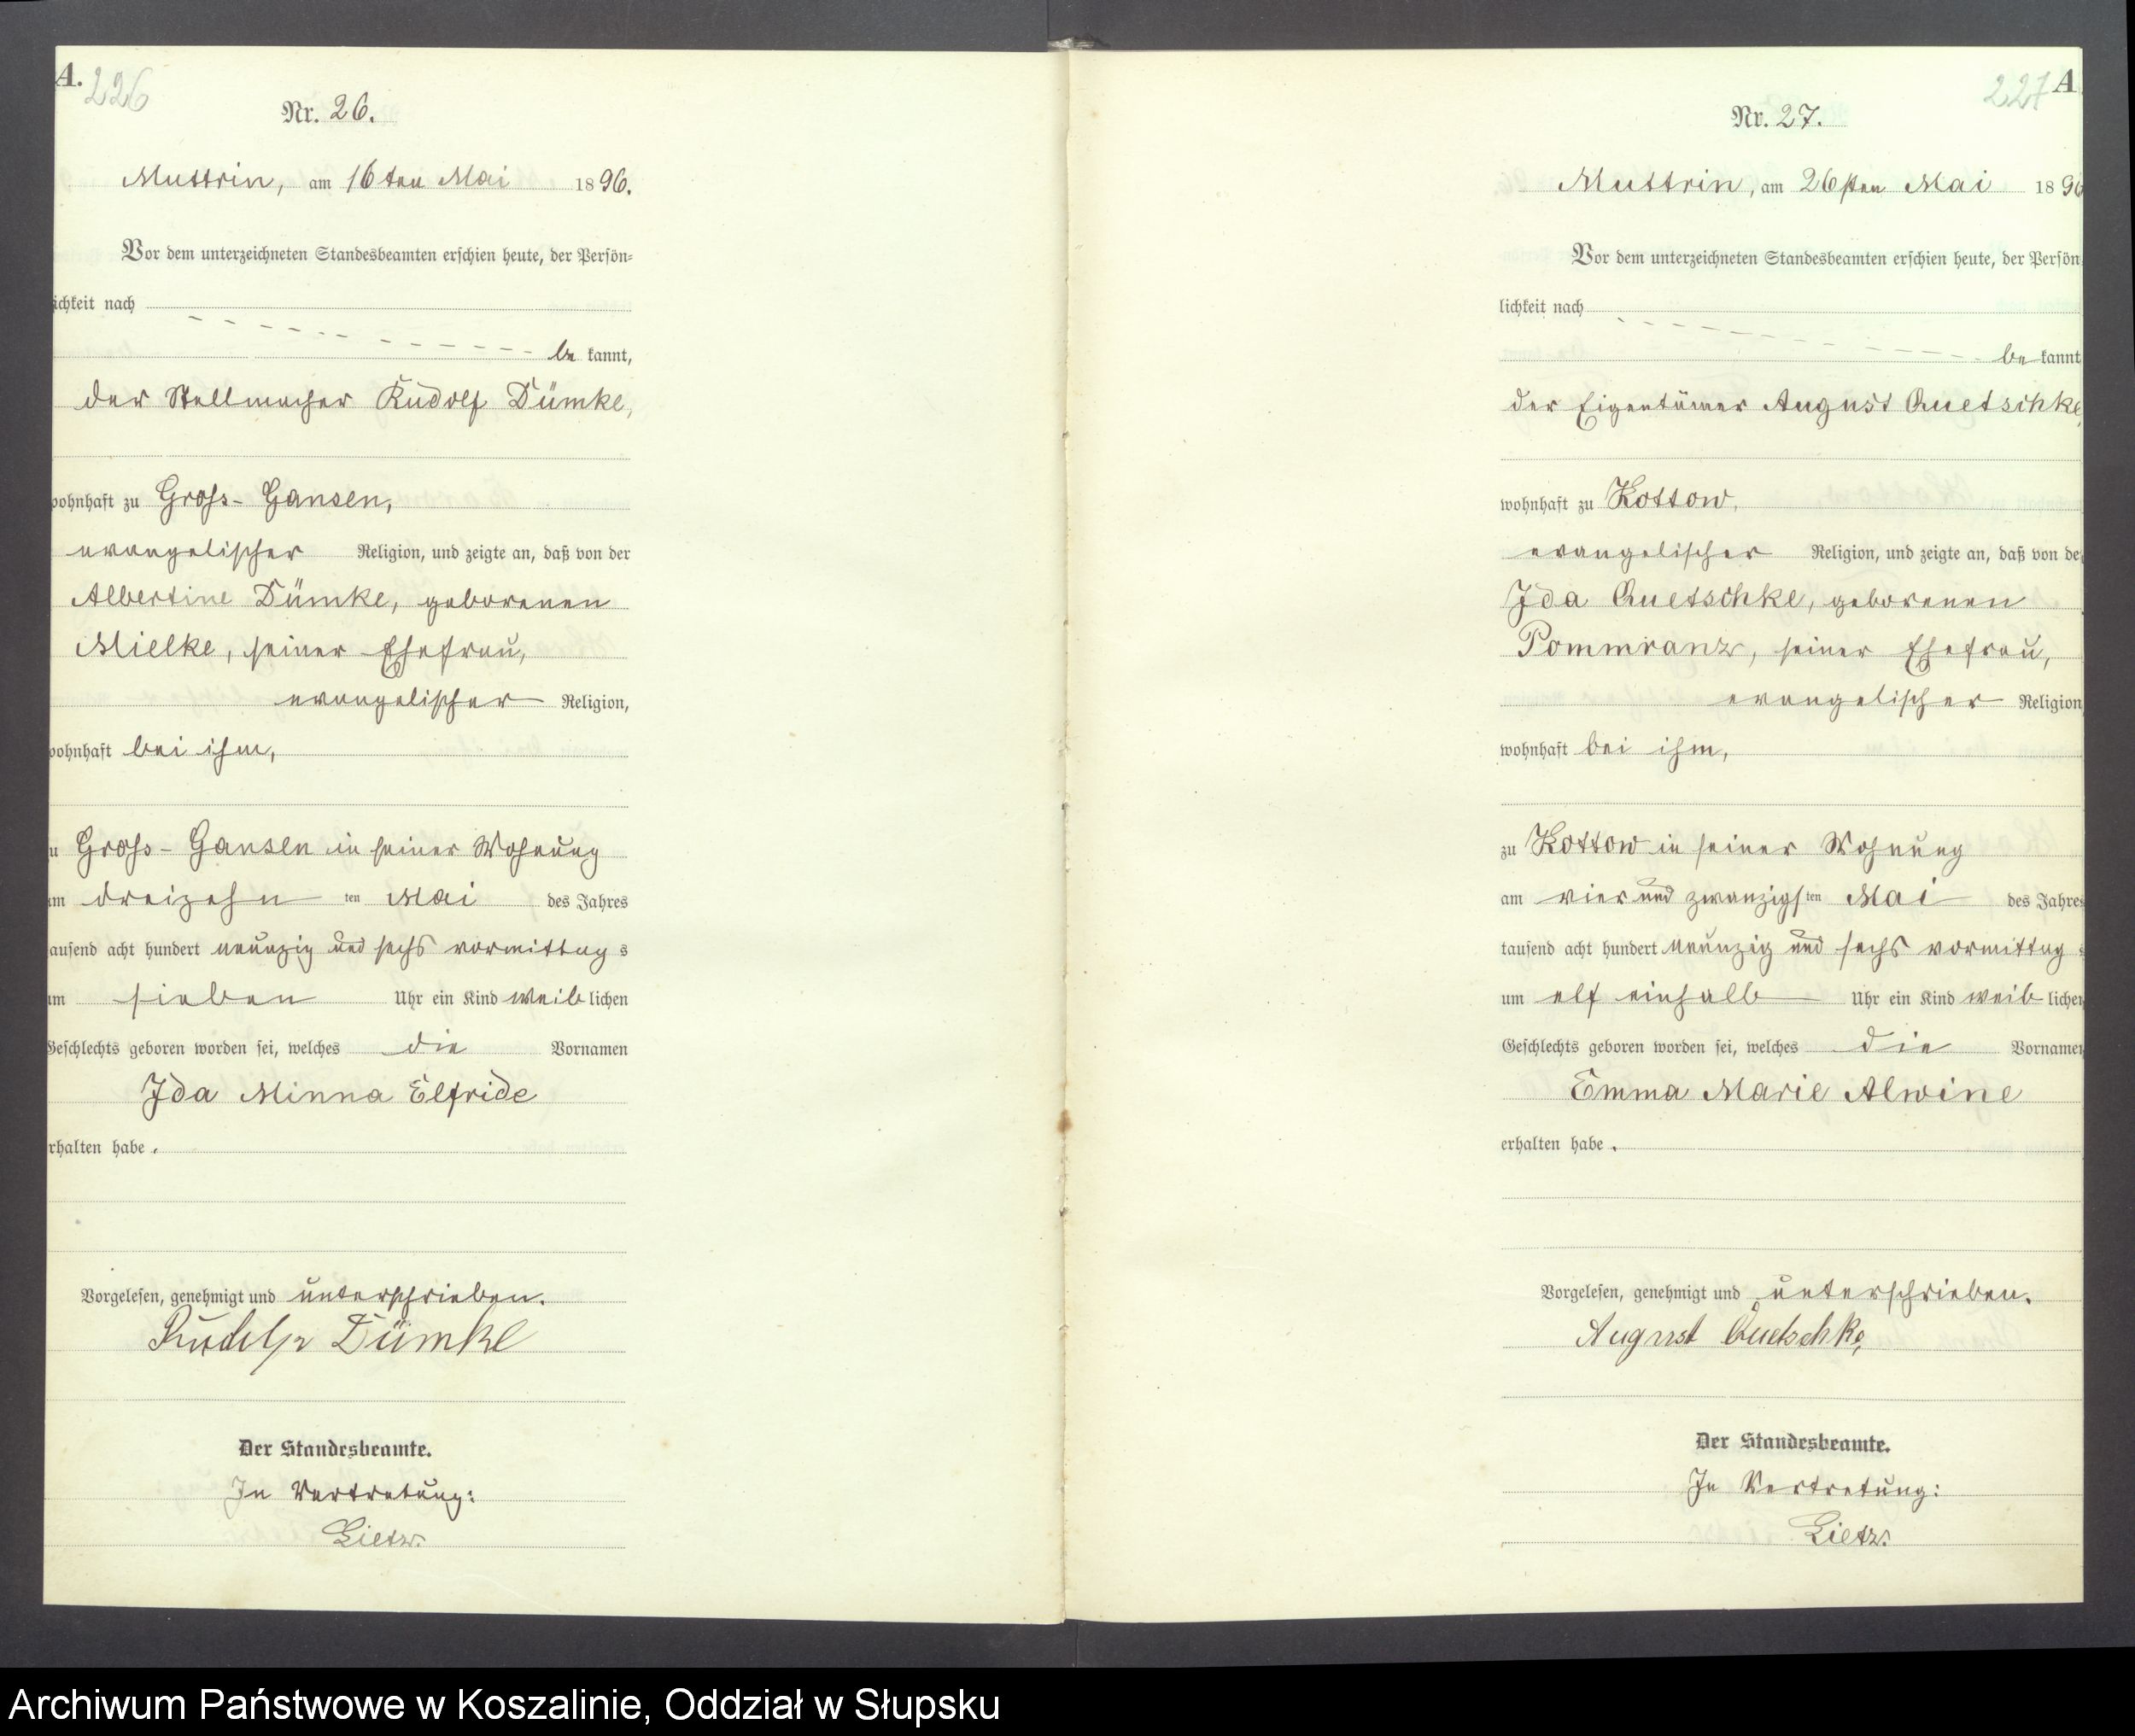 A.
226
Nr. 26.
Muttrin, am 16ten Mai 1896.
Vor dem unterzeichneten Standesbeamten erschien heute, der Persön-
ichkeit nach
be kannt,
der Stellmacher Rudolf Dümke,
wohnhaft zu Gross-Gansen,
evangelischer Religion, und zeigte an, daß von der
Albertine Dümke, geborenen
Mielke, seiner Ehefrau,
evangelischer Religion,
wohnhaft bei ihm,
zu Gross-Gansen in seiner Wohnung
am dreizehn ten Mai des Jahres
tausend acht hundert neunzig und sechs vormittag s
um sieben Uhr ein Kind weib lichen
Geschlechts geboren worden sei, welches die Vornamen
Ida Minna Elfride
erhalten habe.
Vorgelesen, genehmigt und unterschrieben.
Rudolf Dümke
Der Standesbeamte.
In Vertretung:
Lietz.
227 A
Nr. 27.
Muttrin, am 26sten Mai 1896
Vor dem unterzeichneten Standesbeamten erschien heute, der Persön
lichkeit nach
be kannt
der Eigentümer August Quetschke,
wohnhaft zu Kottow,
evangelischer Religion, und zeigte an, daß von der
Ida Quetschke, geborenen
Pommranz, seiner Ehefrau,
evangelischer Religion
wohnhaft bei ihm,
zu Kottow in seiner Wohnung
am vier und zwanzigsten Mai des Jahres
tausend acht hundert neunzig und sechs vormittag s
um elf einhalb Uhr ein Kind weib lichen
Geschlechts geboren worden sei, welches die Vornamen
Emma Marie Alwine
erhalten habe.
Vorgelesen, genehmigt und unterschrieben.
August Quetschke,
Der Standesbeamte.
In Vertretung:
Lietz.
Archiwum Państwowe w Koszalinie, Oddział w Słupsku